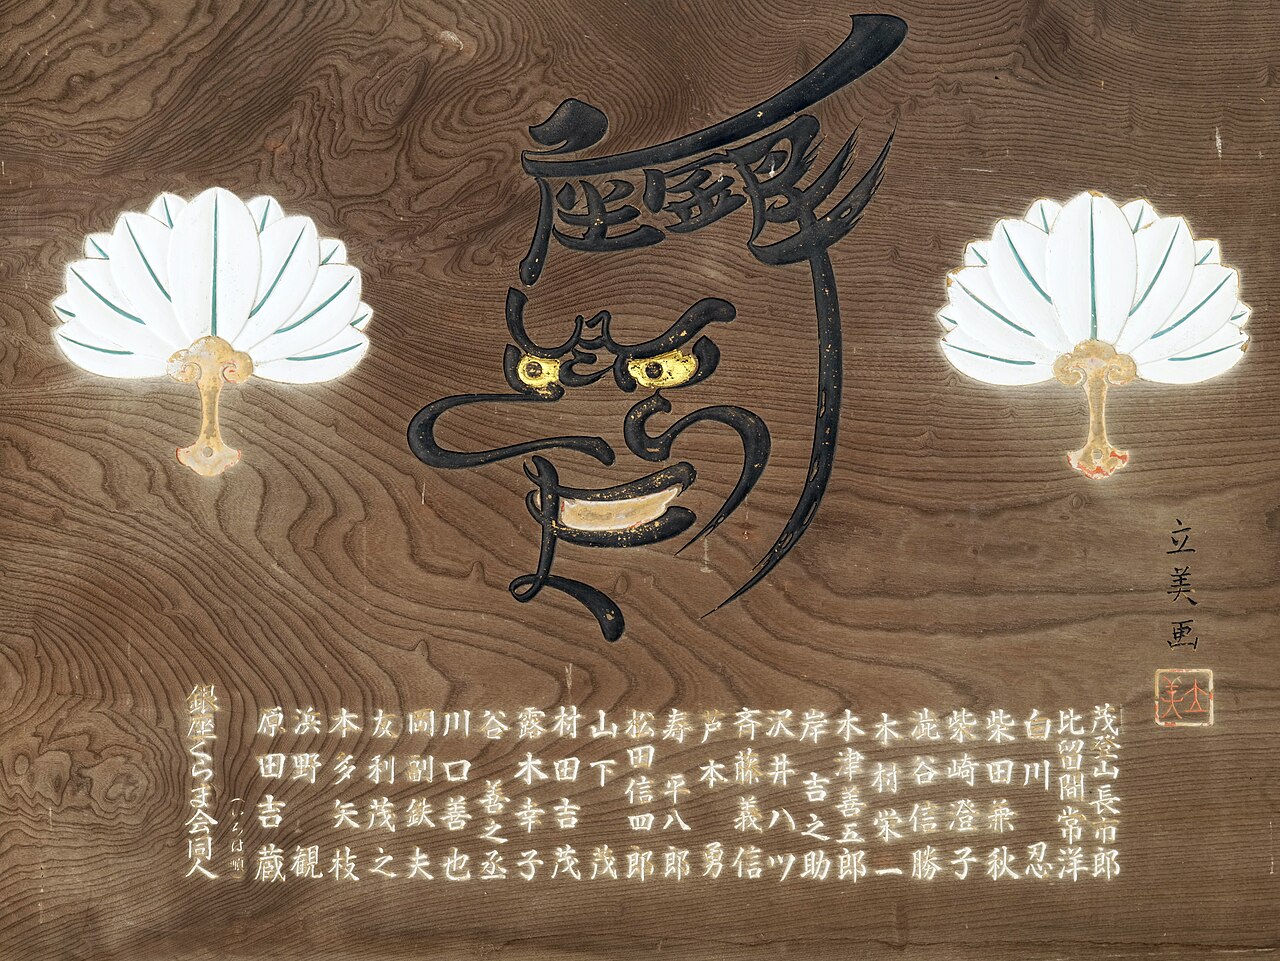 銀座
立美画
銀座くらま会同人
(いろは順)
原田吉蔵
浜野観
本多矢枝
友利茂之
岡副鉄夫
川口善也
谷善之丞
露木幸子
村田吉茂
山下茂
松田信四郎
寿平八郎
芦本勇
斉藤義信
沢井八ツ
岸吉之助
木津善五郎
木村栄一
澁谷信勝
柴崎澄子
柴田兼秋
白川忍
比留間常洋
茂登山長市郎